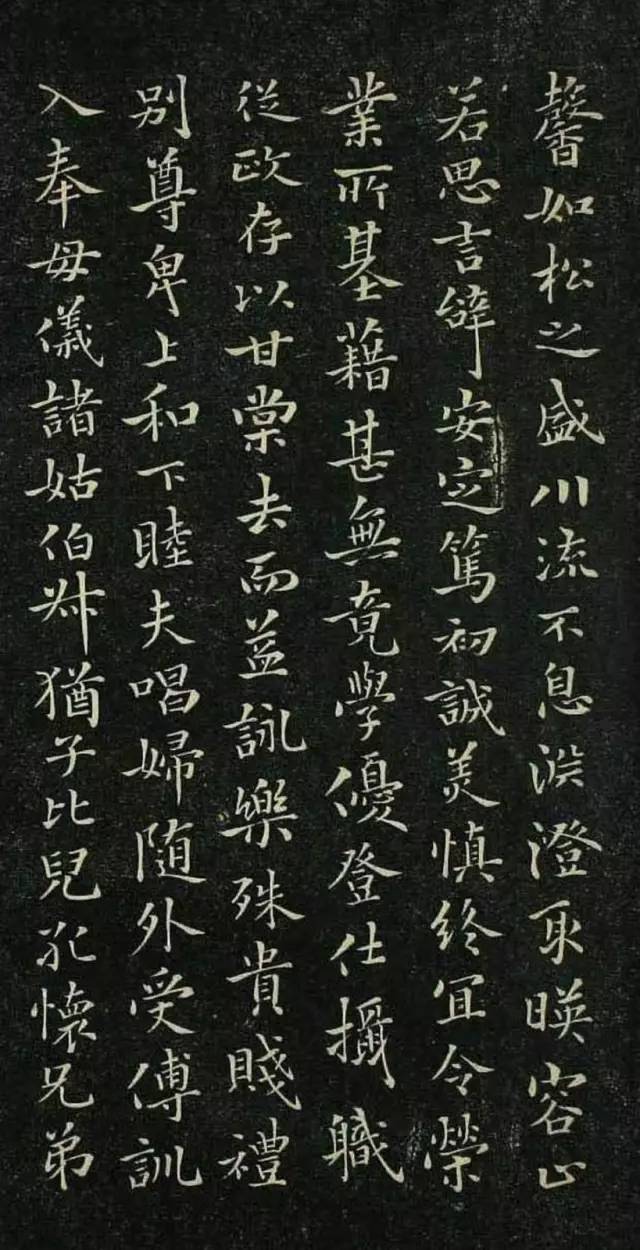 馨如松之盛川流不息淵澄取暎容止
若思言辝安定篤初誠美慎終宜令榮
業所基藉甚無竟學優登仕攝職
從政存以甘棠去而益詠樂殊貴賤禮
别尊卑上和下睦夫唱婦随外受傅訓
入奉母儀諸姑伯叔猶子比兒孔懷兄弟